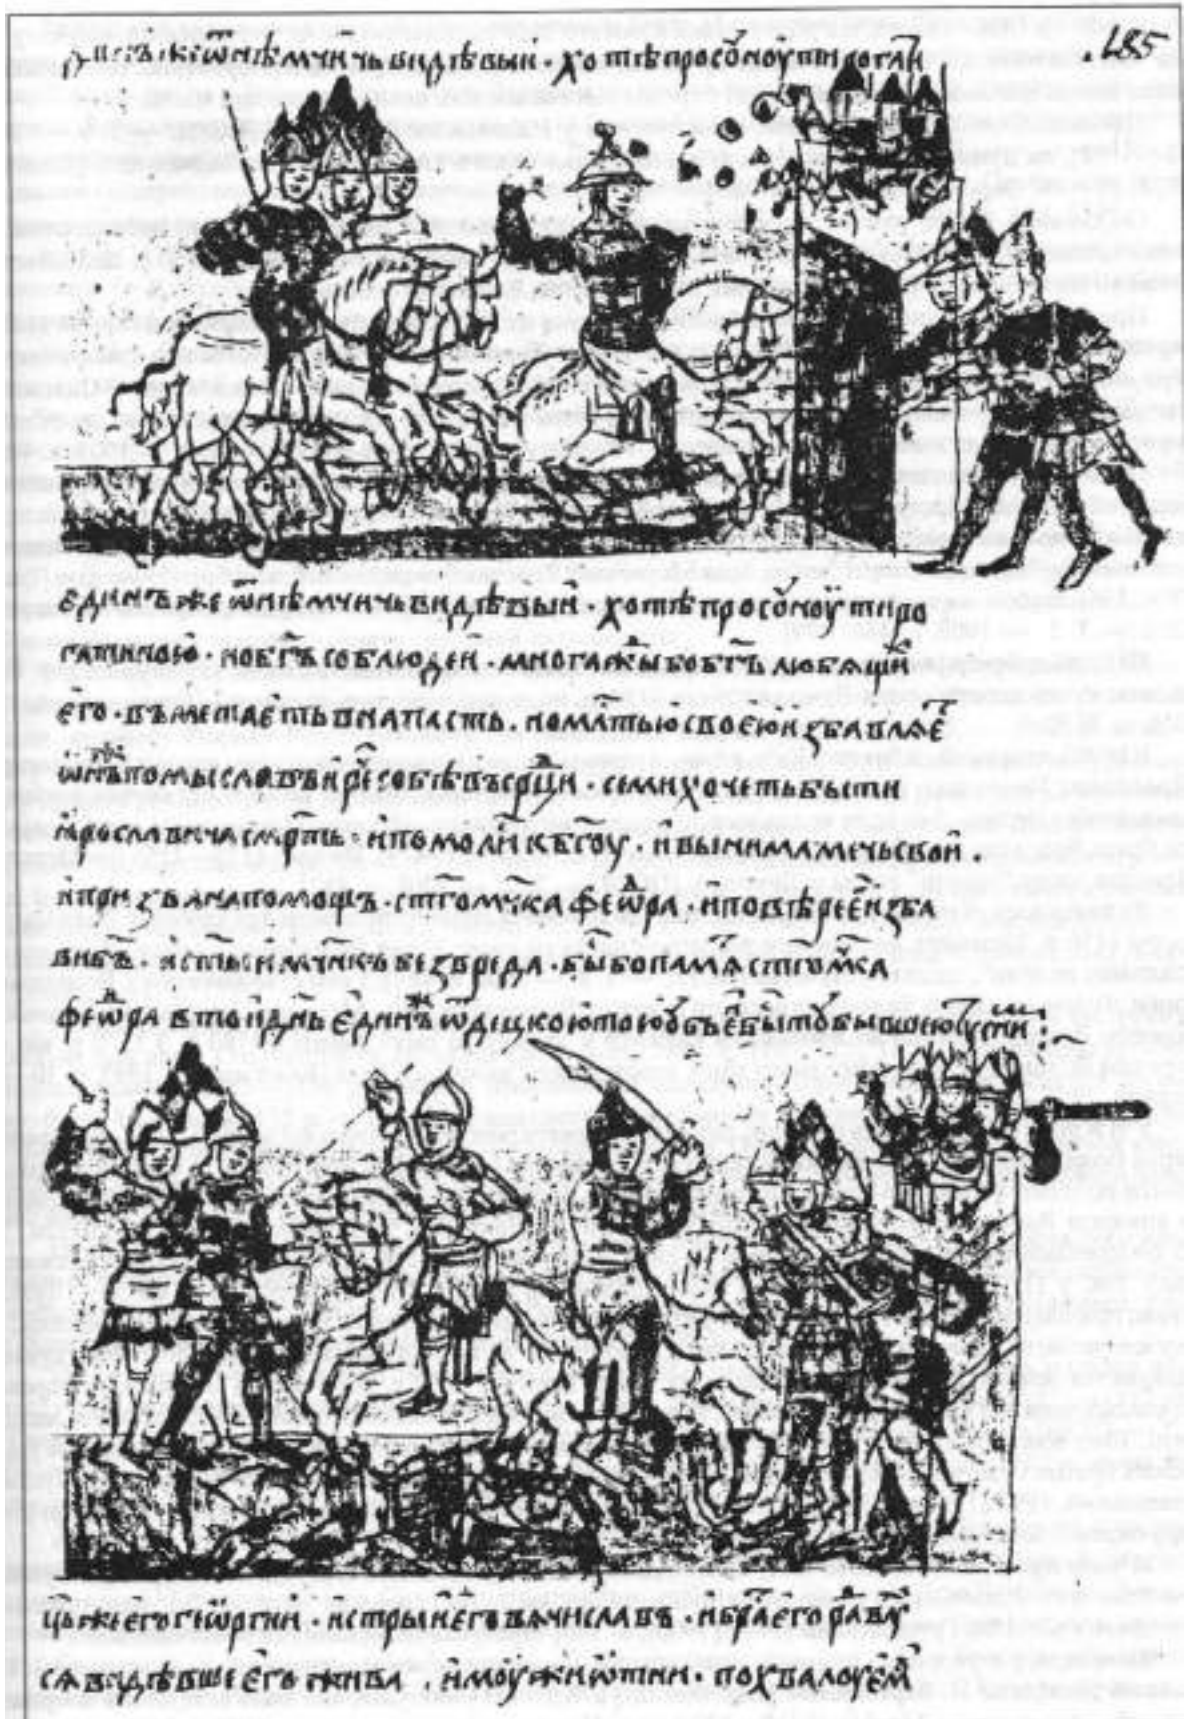 нъ же ѿ нѣмчичь видѣвыи · хотѣ просоуноути рогати
185
единъ же ѿ нѣмчичь видѣвыи · хотѣ просоуноути ро
гатиною · но б҃гъ соблюде и · многажⷣы бо б҃гъ любящиⷯ
его · въметаеть в напасть · но млⷭ҇тью своею избавляеⷮ
ѡнъ же помысливъ и реⷱ҇ собѣ въ срⷣци · се ми хочеть быти
ярославича смр҃ть · и помолиⷭ҇ к б҃гоу · и вынима мечь свои ·
и призва на помощь · ст҃го мч҃нка феѡⷣра · и по вѣре еⷢ҇ изба
ви б҃ъ · и ст҃ыи мч҃нкъ без вреда · бы бо памяⷮ ст҃го мч҃нка
феѡⷣра в тои дн҃ь единъ ѿ дѣцкою тою
ѡц҃ь же его гюргии · и стрыи его вячиславъ · и браⷮ его радова
ся видѣвше его жива · и моужи ѿни · похвалоу емⷹ